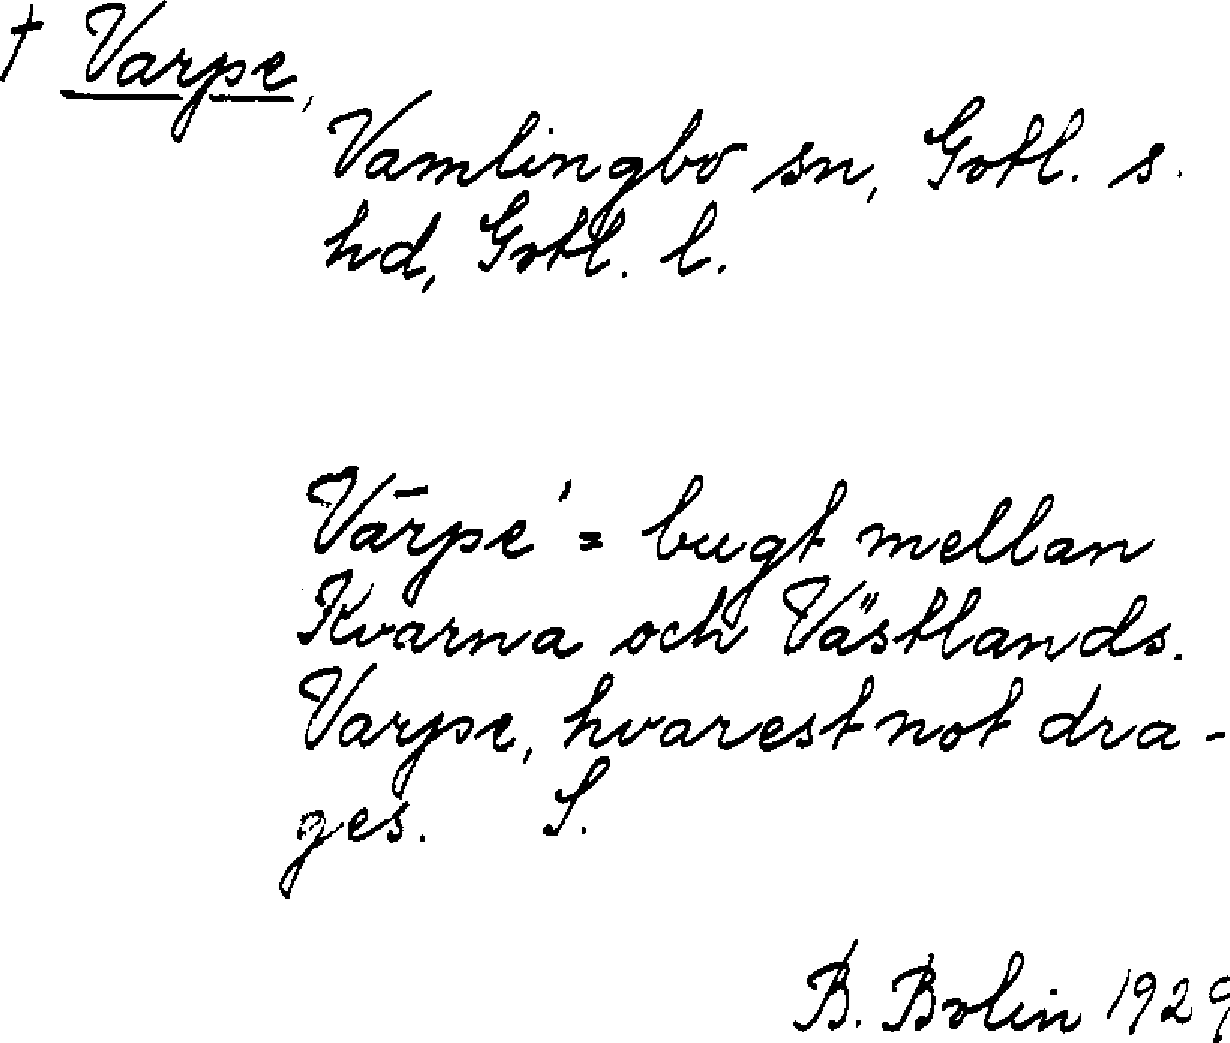 † Varpe,
Vamlingbo sn, Gotl. s.
hd, Gotl. l.
Vārpe' = bugt mellan
Kvarna och Västlands.
Varpe, hvarest not dra-
ges. S.
B. Bolin 1929